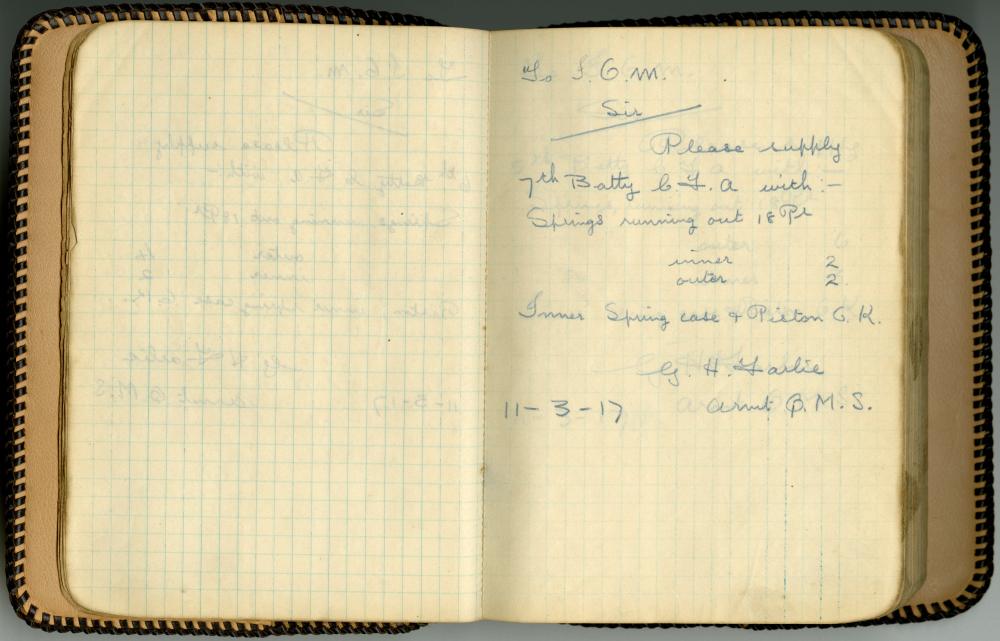 To I.O.M.
Sir
Please supply
7th Batty C.F.A with :-
Springs running out 18 Pr
inner 2
outer 2
Inner Spring case & Piston O.K.
G. H. Farlie
Armt Q.M.S.
11-3-17